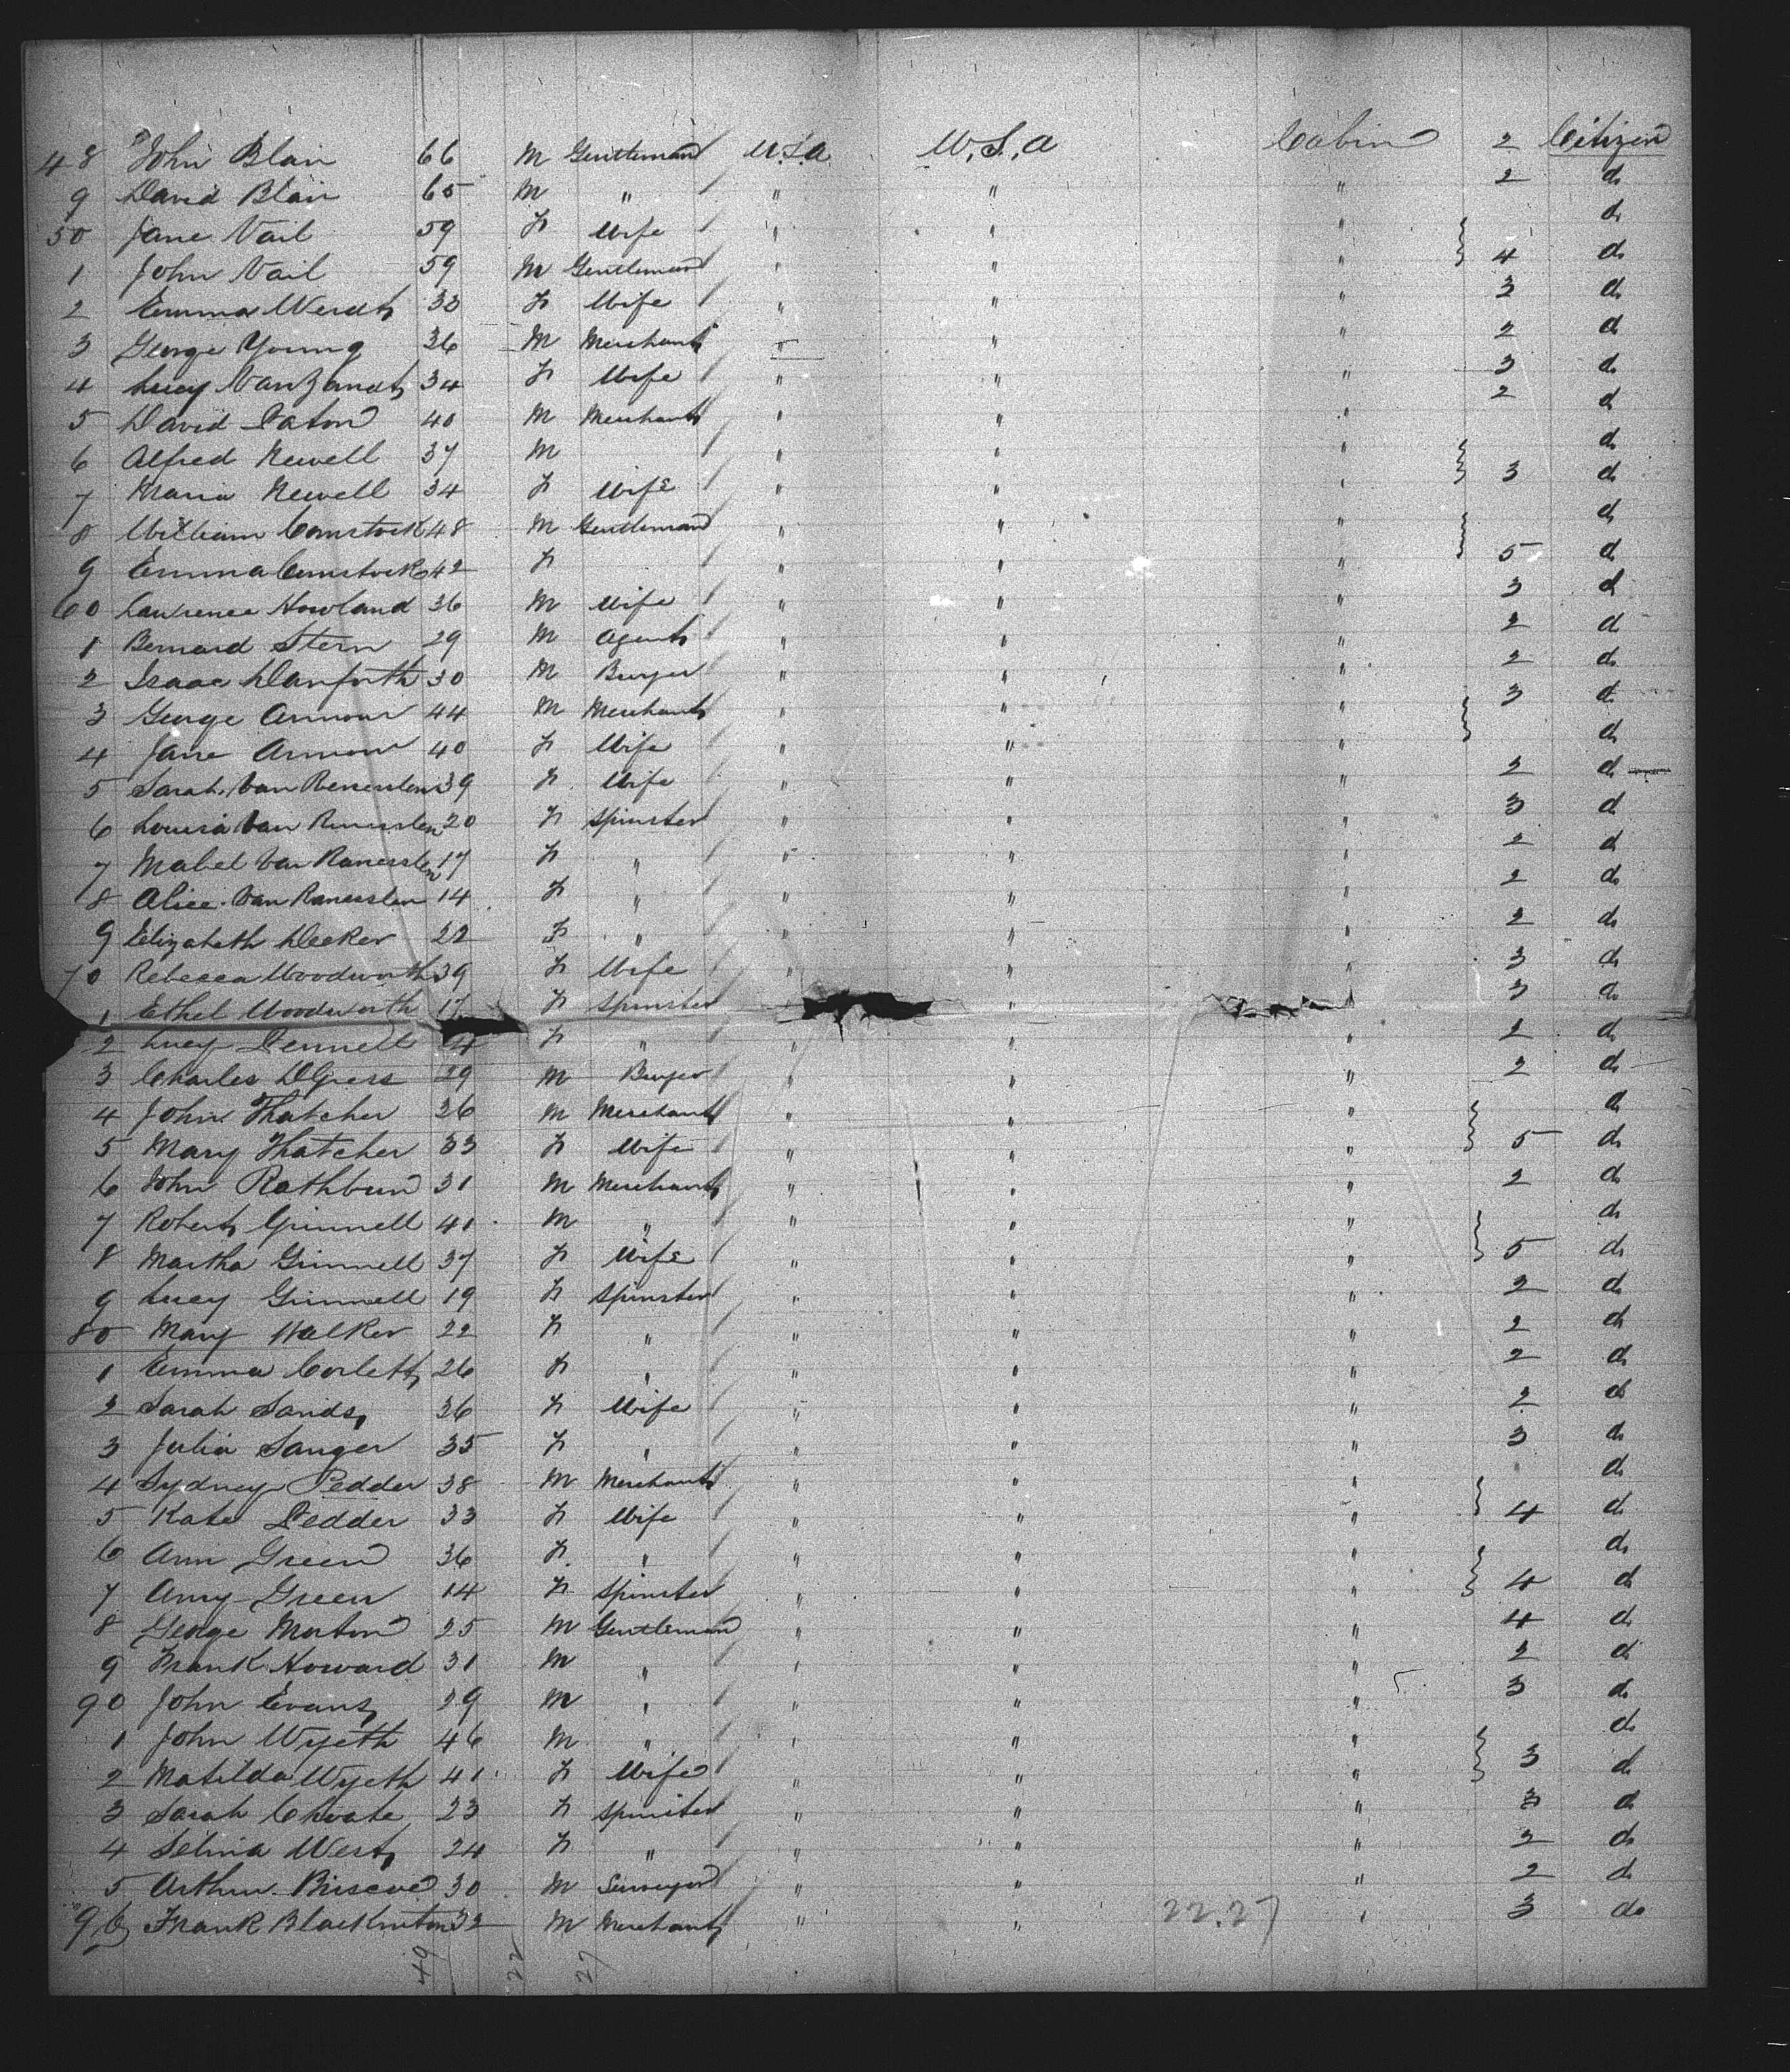 48 John Blair 66 M Gentleman U.S.A U.S.A Cabin 2 Citizen
9 David Blair 65 M " " " " 2 do
50 Jane Vail 59 F Wife " " " do
1 John Vail 59 M Gentleman " " " 4 do
2 Emma Wendt 33 F Wife " " " 3 do
3 George Young 36 M Merchant " " " 2 do
4 Lucy VanZandt 34 F Wife " " " 3 do
5 David Paton 40 M Merchant " " " 2 do
6 Alfred Newell 37 M " " " do
7 Maria Newell 34 F Wife " " " 3 do
8 William Comstock 48 M Gentleman " " " do
9 Emma Comstock 42 F " " " 5 do
60 Lawrence Howland 36 M Wife " " " 3 do
1 Bernard Stern 29 M Agent " " " 2 do
2 Isaac Danforth 30 M Buyer " " " 2 do
3 George Armour 44 M Merchant " " " 3 do
4 Jane Armour 40 F Wife " " " do
5 Sarah Van 39 F Wife " " " 2 do
6 Louisa Van 20 F Spinster " " " 3 do
7 Mabel Van 17 F " " " " 2 do
8 Alice Van 14 F " " " " 2 do
9 Elizabeth Decker 22 F " " " " 2 do
70 Rebecca Woodworth 39 F Wife " " " 3 do
1 Ethel Woodworth 17 F Spinster " " 3 do
2 Lucy Pennell F " " " " 2 do
3 Charles 29 M Buyer " " 2 do
4 John Thatcher 36 M Merchant " " " do
5 Mary Thatcher 33 F Wife " " " 5 do
6 John Rathbun 31 M Merchant " " " 2 do
7 Robert Grinnell 41 M " " " " do
8 Martha Grinnell 37 F Wife " " " 5 do
9 Lucy Grinnell 19 F Spinster " " " 2 do
80 Mary Walker 22 F " " " " 2 do
1 Emma Corlett 26 F " " " " 2 do
2 Sarah Sands 36 F Wife " " " 2 do
3 Julia Sanger 35 F " " " " 3 do
4 Sydney Pedder 38 M Merchant " " " do
5 Kate Pedder 33 F Wife " " " 4 do
6 Ann Green 36 F " " " " do
7 Amy Green 14 F Spinster " " " 4 do
8 George Morton 25 M Gentleman " " " 4 do
9 Frank Howard 31 M " " " " 2 do
90 John Evans 29 M " " " " 3 do
1 John Wyeth 46 M " " " " do
2 Matilda Wyeth 41 F Wife " " " 3 do
3 Sarah Choate 23 F Spinster " " " 3 do
4 Selina West 24 F " " " " 2 do
5 Arthur Briscoe 30 M Surveyor " " " 2 do
96 Frank Blackinton 32 M Merchant " " 22.27 " 3 do
49 22 27